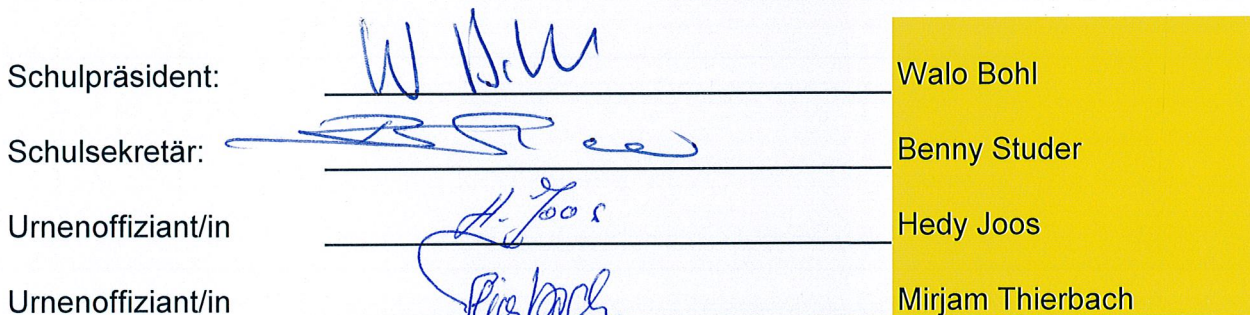 Schulpräsident: W Bohl Walo Bohl
Schulsekretär: Benny Studer
Urnenoffiziant/in H. Joos Hedy Joos
Urnenoffiziant/in Thierbach Mirjam Thierbach